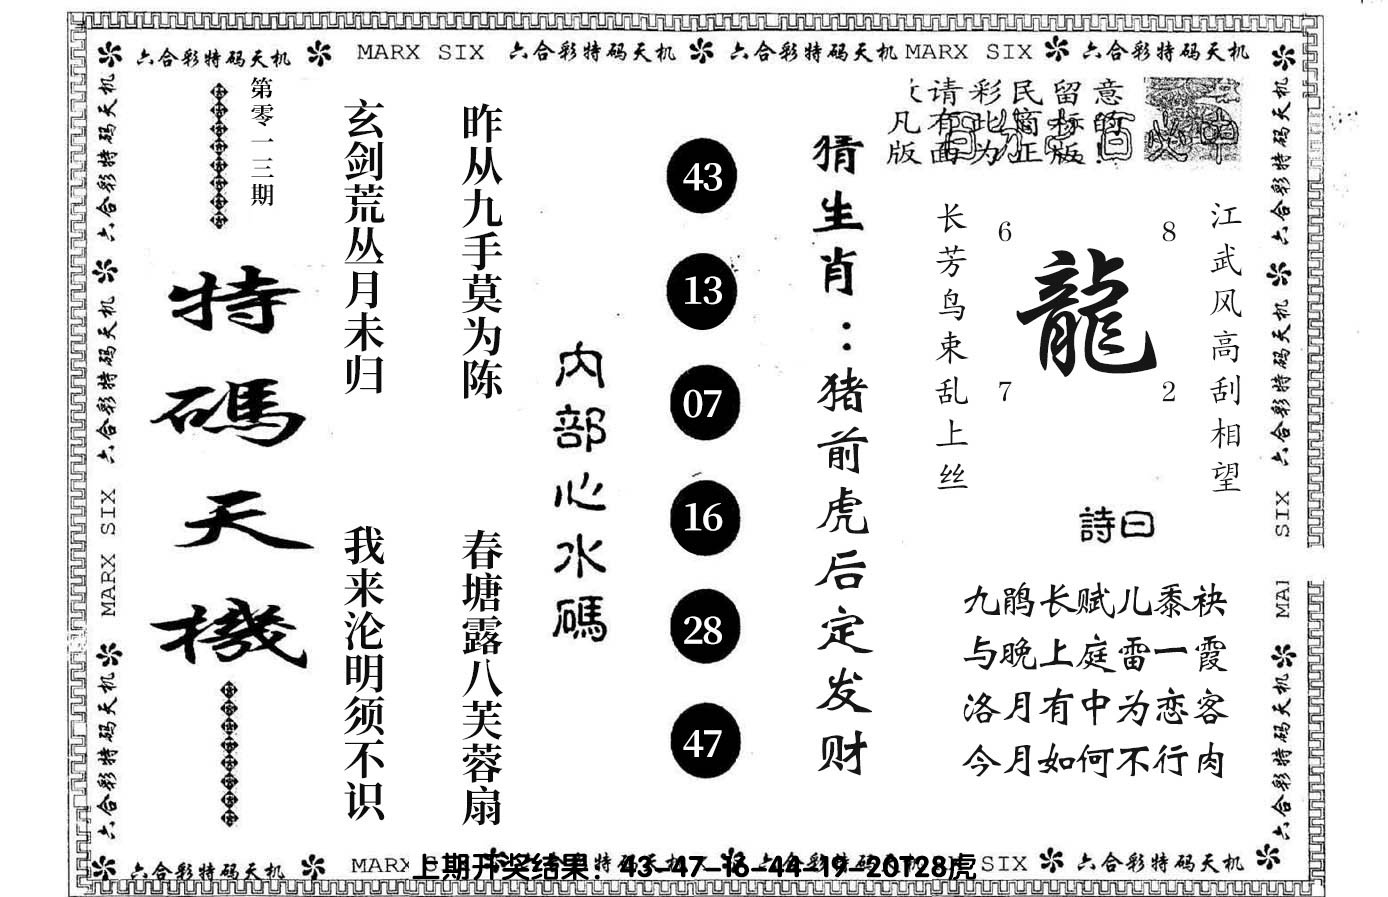 六合彩特码天机 MARX SIX 六合彩特码天机 六合彩特码天机 MARX SIX 六合彩特码天机
第零一三期
特碼天機
玄剑荒丛月未归
我来沦明须不识
昨从九手莫为陈
春塘露八芙蓉扇
内部心水碼
43
13
07
16
28
47
猜生肖：猪前虎后定发财
请彩民留意
凡有此商标的
版面为正版!
江武风高刮相望
长芳鸟束乱上丝
6 8
龍
7 2
詩曰
九鹃长赋儿黍袂
与晚上庭雷一霞
洛月有中为恋客
今月如何不行肉
六合彩特码天机
六合彩特码天机
MARX SIX
六合彩特码天机
六合彩特码天机
六合彩特码天机
SIX
六合彩特码天机
六合彩特码天机 MARX
上期开奖结果：43-47-16-44-19-20T28虎
SIX 六合彩特码天机